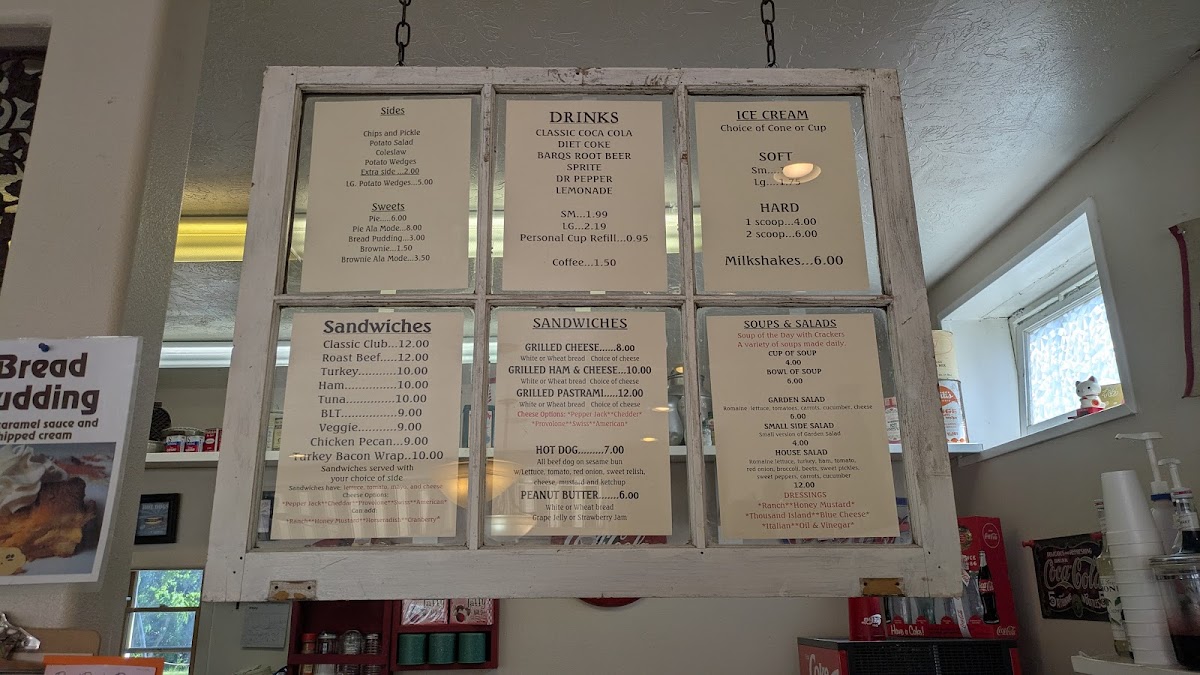 Sides
Chips and Pickle
Potato Salad
Coleslaw
Potato Wedges
Extra side ...2.00
LG. Potato Wedges...5.00
Sweets
Pie.....6.00
Pie Ala Mode...8.00
Bread Pudding...3.00
Brownie...1.50
Brownie Ala Mode...3.50
DRINKS
CLASSIC COCA COLA
DIET COKE
BARQS ROOT BEER
SPRITE
DR PEPPER
LEMONADE
SM...1.99
LG...2.19
Personal Cup Refill...0.95
Coffee...1.50
ICE CREAM
Choice of Cone or Cup
SOFT
Sm....
Lg....
HARD
1 scoop...4.00
2 scoop...6.00
Milkshakes...6.00
Sandwiches
Classic Club...12.00
Roast Beef.....12.00
Turkey............10.00
Ham................10.00
Tuna...............10.00
BLT.................9.00
Veggie............9.00
Chicken Pecan...9.00
Turkey Bacon Wrap..10.00
Sandwiches served with
your choice of side
Sandwiches have, lettuce, tomato, mayo, and cheese
Cheese Options:
*Pepper Jack**Cheddar**Provolone**Swiss**American*
Can add:
*Ranch**Honey Mustard**Horseradish**Cranberry*
SANDWICHES
GRILLED CHEESE......8.00
White or Wheat bread Choice of cheese
GRILLED HAM & CHEESE...10.00
White or Wheat bread Choice of cheese
GRILLED PASTRAMI.....12.00
White or Wheat bread Choice of cheese
Cheese Options: *Pepper Jack**Chedder*
*Provolone**Swiss**American*
HOT DOG.........7.00
All beef dog on sesame bun
w/Lettuce, tomato, red onion, sweet relish,
cheese, mustard and ketchup
PEANUT BUTTER.......6.00
White or Wheat bread
Grape Jelly or Strawberry Jam
SOUPS & SALADS
Soup of the Day with Crackers
A variety of soups made daily.
CUP OF SOUP
4.00
BOWL OF SOUP
6.00
GARDEN SALAD
Romaine lettuce, tomatoes, carrots, cucumber, cheese
6.00
SMALL SIDE SALAD
Small version of Garden Salad
4.00
HOUSE SALAD
Romaine lettuce, turkey, ham, tomato,
red onion, broccoli, beets, sweet pickles,
sweet peppers, carrots, cucumber
12.00
DRESSINGS
*Ranch**Honey Mustard*
*Thousand Island**Blue Cheese*
*Italian**Oil & Vinegar*
Bread
udding
caramel sauce and
hipped cream
Coca-Cola
Have a Coke!
Coca-Cola
Coke